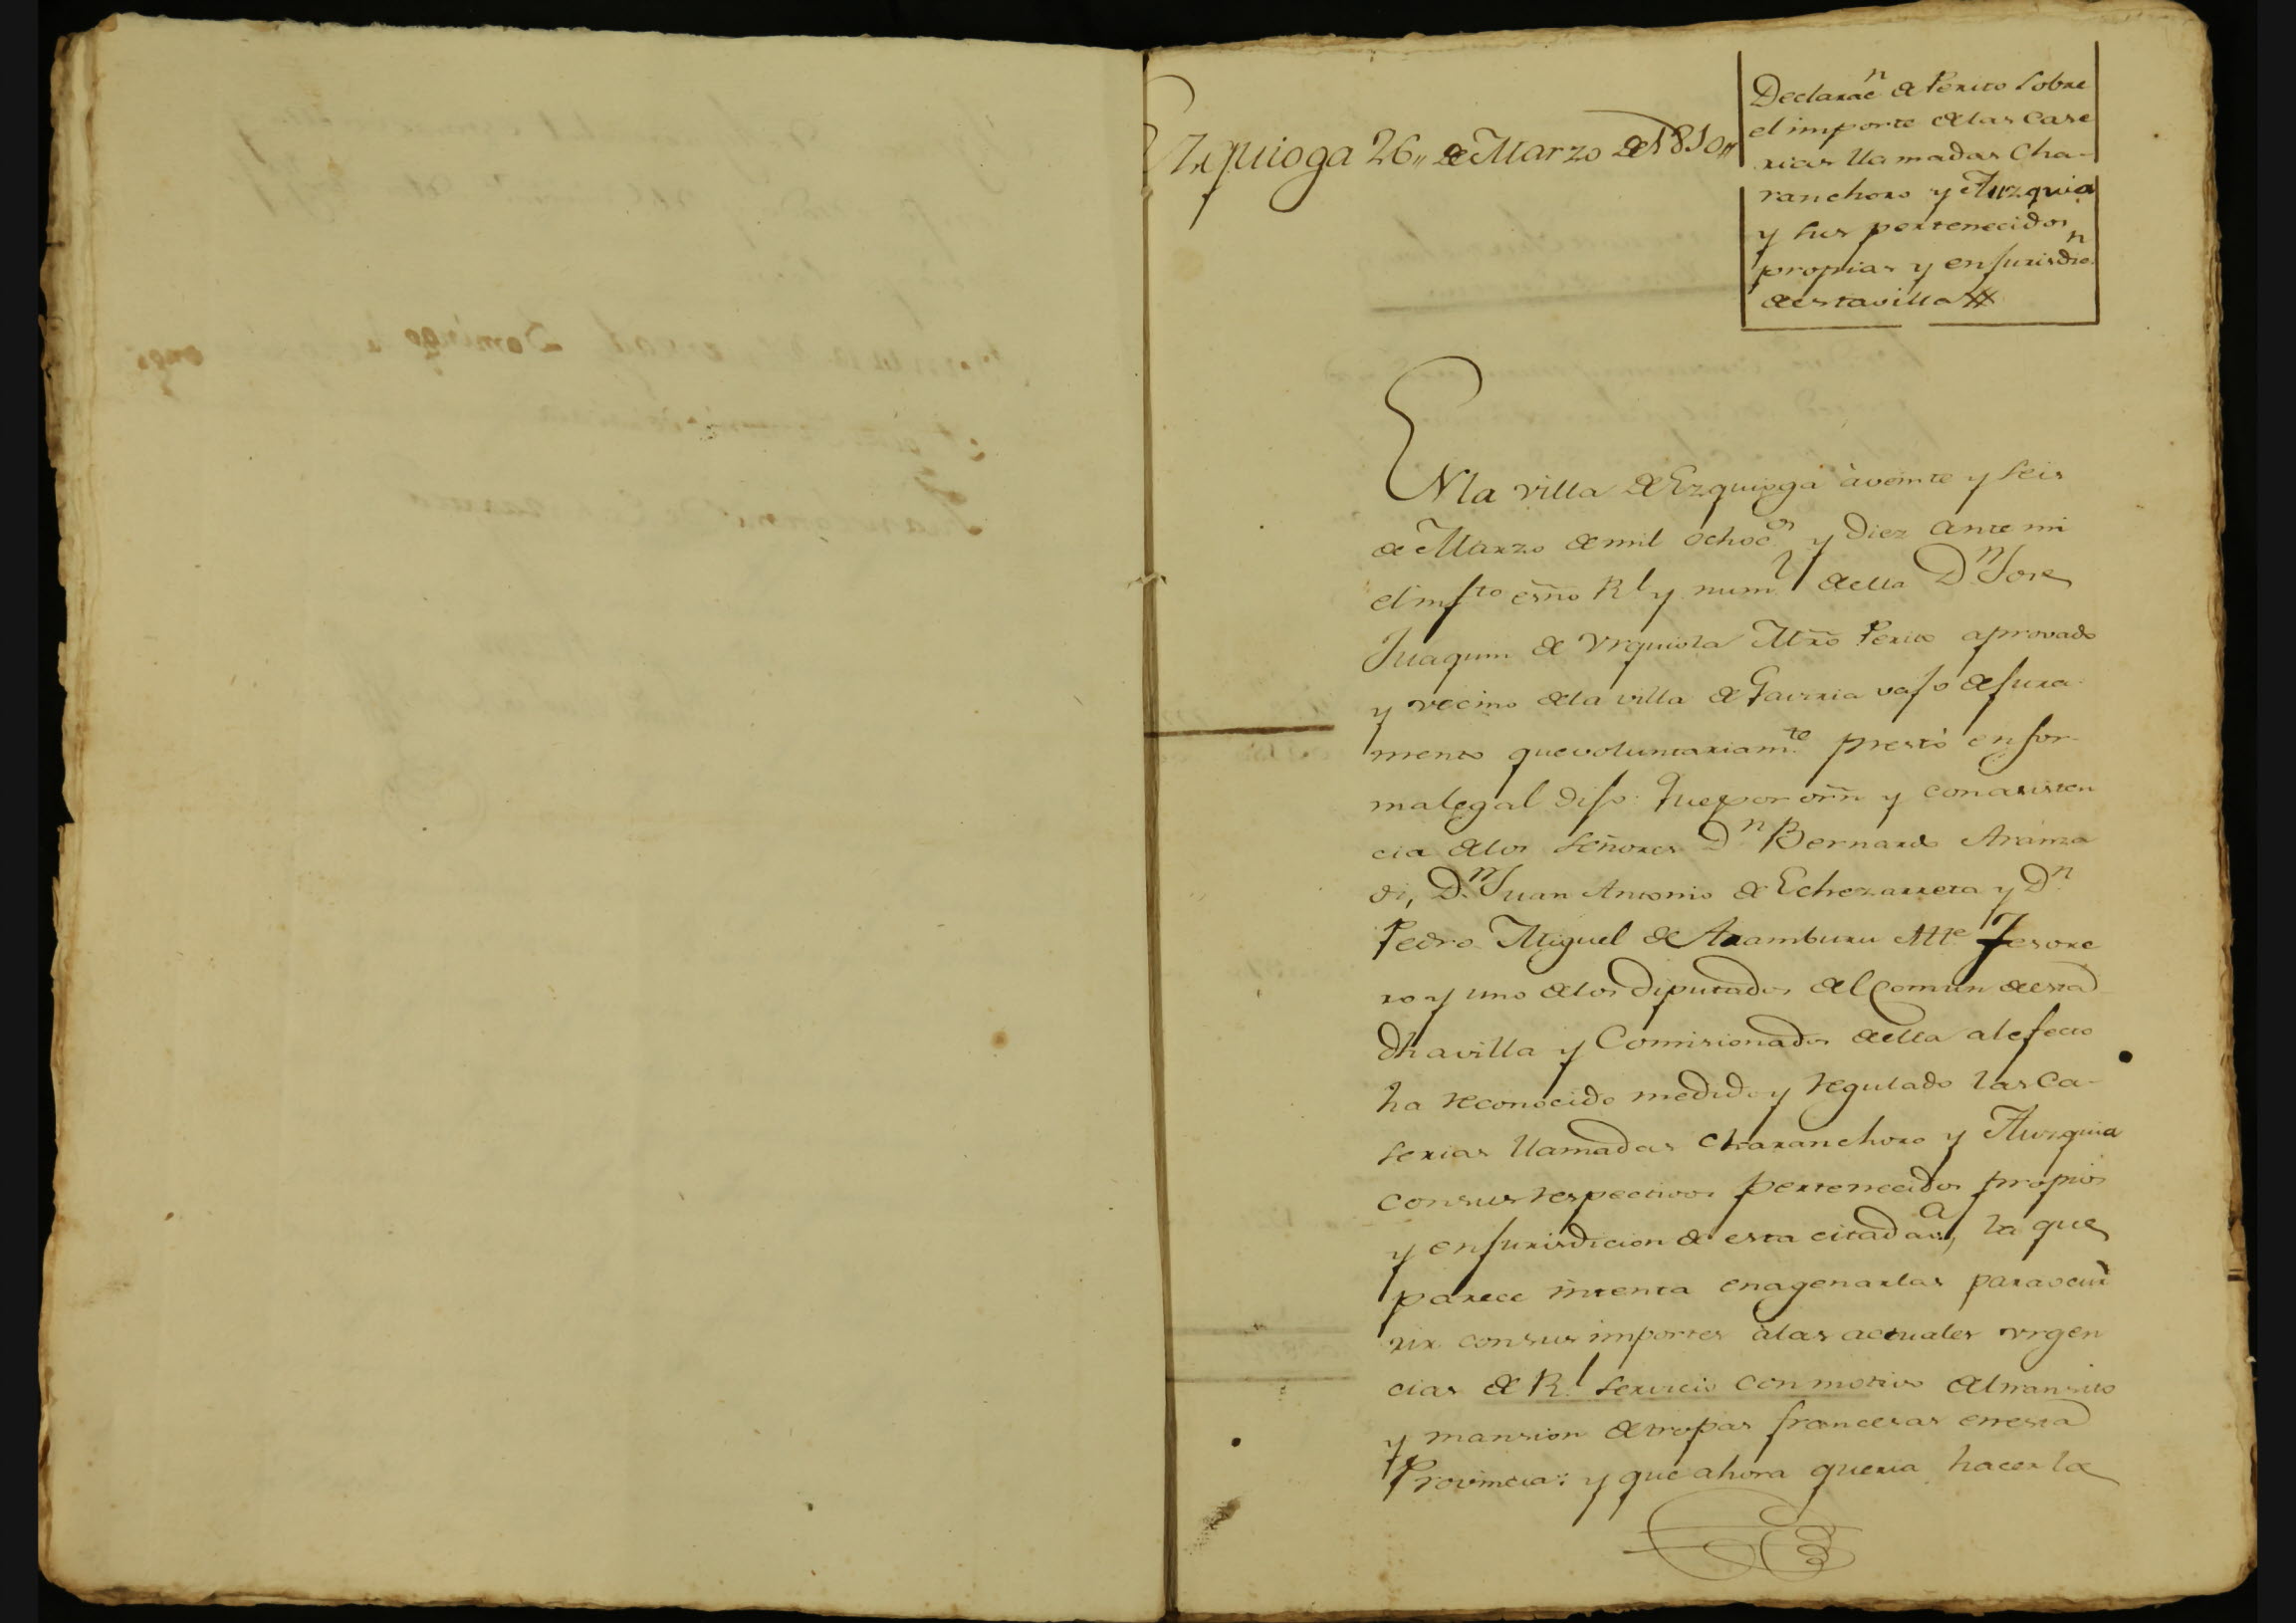 Ezquioga 26,, de Marzo de 1810,,
Declarac.n de Perito sobre
el importe de las Case
rias llamadas Cha-
ranchoro y Auzquia
y sus pertenecidos
propias y en jurisdic.n
de esta villa
EN la villa de Ezquioga à veinte y seis
de Marzo de mil ochoc.os y diez ante mi
el infto esño Rl y numl de ella Dn Jose
Juaquin de Vrquiola Mtro Perito aprovado
y vecino de la villa de Gaviria vajo de jura
mento que voluntariam.te prestò en for
ma legal dijo: Que por orñ y con asisten
cia de los señores Dn Bernardo Aramza
di, Dn Juan Antonio de Echezarreta y Dn
Pedro Miguel de Aramburu Alle Tesore
ro y uno de los Diputados del Comun de esta
dha villa y Comisionados de ella al efecto
ha reconocido medido y regulado las Ca-
serias llamadas Charanchoro y Auzquia
con sus respectivos pertenecidos propios
y en jurisdicion de esta citada, la que
parece intenta enagenarlas para ocur
rir con sus importes à las actuales vrgen
cias de Rl servicio con motivo del transito
y mansion de tropas francesas en esta
Provincia: y que ahora queria hacer la